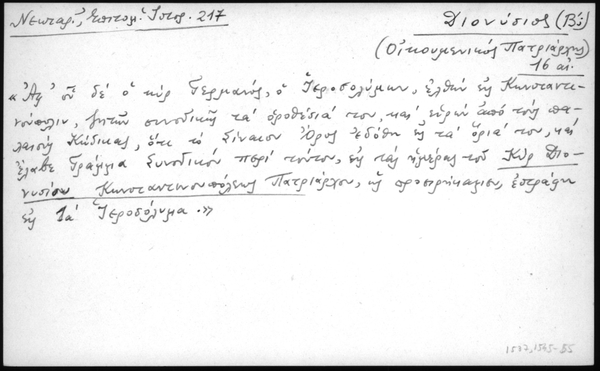 Νεκταρ., Ἐπιτομ. Ἱστορ. 217
Διονύσιος (Β´)
(Οἰκουμενικὸς Πατριάρχης)
16 αἰ.
« Ἀφ᾽ οὗ δὲ ὁ κὺρ Γερμανός, ὁ Ἱεροσολύμων, ἐλθὼν εἰς Κωνσταντι-
νούπολιν, ζητῶν συνοδικῶς τὰ ὁροθέσιά του, καὶ εὑρὼν ἀπὸ τοὺς πα-
λαιοὺς Κώδικας, ὅτι τὸ Σίναιον Ὄρος ἐδόθη εἰς τὰ ὅριά του, καὶ
ἔλαβε Γράμμα Συνοδικὸν περὶ τούτου, εἰς τὰς ἡμέρας τοῦ Κὺρ Διο-
νυσίου Κωνσταντινουπόλεως Πατριάρχου, ὡς προειρήκαμεν, ἐστράφη
εἰς τὰ Ἱεροσόλυμα .»
1537, 1545-55